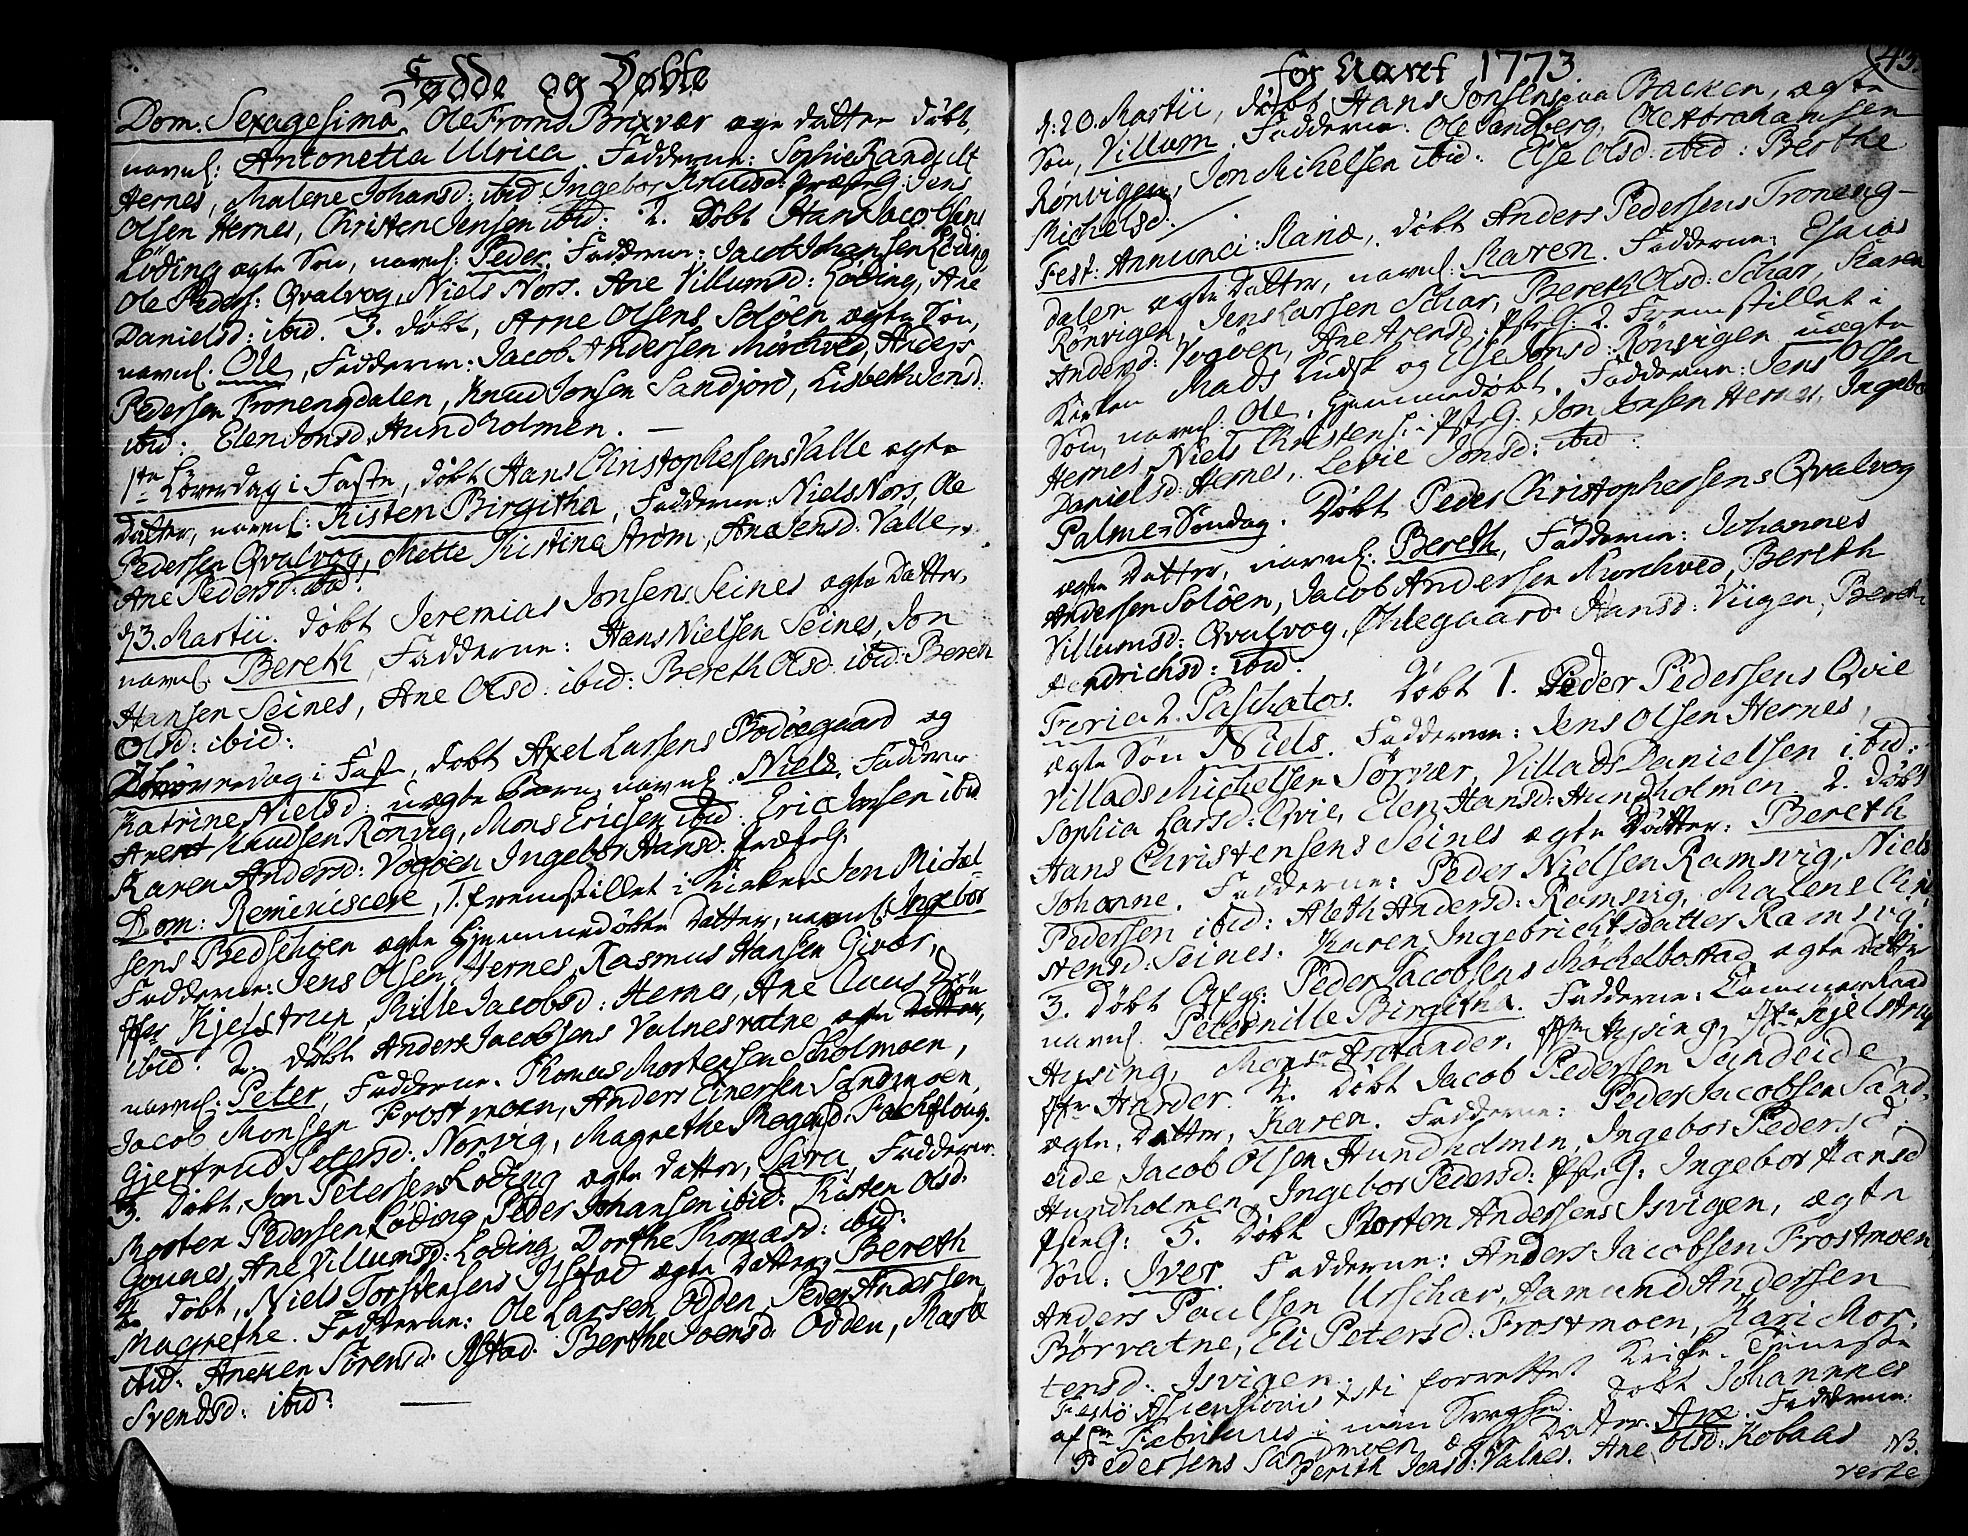 Fødde og Døbte
Dom. Sexagesima Ole Froms Brixvær ægte datter døbt,
navnl: Antonetta Ulrica. Fadderne: Sophie Randulf
Hernes, Malene Johansd: ibid: Ingebor Knudsd: Præsteg: Jens
Olsen Hernes, Christen Jensen ibid: 2. Døbt Hans Jacobsens
Løding ægte Søn, navnl: Peder. Fadderne: Jacob Johansen Løding,
Ole Peders: Qvalvog, Niels Nors. Ane Villumsd: Løding, Ane
Danielsd: ibid. 3. døbt, Arne Olsens Soløen ægte Søn,
navnl. Ole, Fadderne: Jacob Andersen Morchved, Anders
Pedersen Tronengdalen, Knud Jonsen Sandjord, Lisbeth Jensd:
ibid: Elen Jonsd. Hundholmen. —
1te Løverdag i Faste, døbt Hans Christophersens Valle ægte
datter, navnl: Kisten Birgitha, Fadderne: Niels Nors, Ole
Pedersen Qvalvog, Mette Kistine Strøm, Ane Jensd: Valle,
Ane Pedersd: ibid:
d. 3. Martii. døbt Jeremias Jonsens Seines ægte Datter,
navnl. Bereth, Fadderne: Hans Nielsen Seines, Jon
Hansen Seines, Ane Olsd: ibid: Bereth Olsd: ibid: Bereth
Olsd: ibid:
i Faste, døbt Axel Larsens Bodøegaard og
Katrine Nielsd: uægte Barn, navnl. Niels. Fadderne
Arent Knudsen Rønvig, Mons Ericsen ibid: Eric Jensen ibid
Karen Andersd: Vogøen Ingebor Hansd: Præsteg:
Dom: Reminiscere, 1. fremstillet i Kirken Jon Michel-
sens Bedschoen ægte Hjemmedøbte Datter, navnl. Ingebor
Fadderne: Jens Olsen Hernes, Rasmus Hansen Givær,
Kjelstrup, Jacobsd: Hernes, Ane
ibid. 2. døbt Anders Jacobsens Valnesvatne ægte Søn
navnl: Peter, Fadderne. Thomas Mortensen Scholmoen,
Jacob Monsen Frostmoen, Anders Einersen Sandmoen,
Gjertrud Petersd: Norvig, Magrethe
3. Døbt, Jon Petersen Løding ægte Datter, Sara, Fadderne.
Morten Pedersen Løding, Peder Johansen ibid: Kisten Olsd:
Ane Villumsd: Løding, Dorthe Thomasd: ibid:
4. døbt, Niels Torstensens Ilstad ægte Datter, Bereth
Magrethe. Fadderne: Ole Larsen Odden, Peder Andersen
ibid: Anexen Sørensd: Ilstad: Berthe Joensd: Odden, Marte
Svendsd: ibid: —
for Aaret 1773
43.
d: 20. Martii, døbt Hans Jonsens paa Backen, ægte
Søn, Villum, Fadderne: Ole Sandberg, Ole Abrahamsen
Rønvigen, Jon Michelsen ibid: Else Olsd: ibid: Berthe
Michelsd:
Fest: Annunci: Mariæ, døbt Anders Pedersens Troneng-
dalen ægte Datter, navnl. Maren. Fadderne: Esaias
Rønvigen, Jens Larsen Schar, Bereth Olsd: Schar, Karen
Andersd: Vogøen, Ane Arensd: PstrG: 2. Fremstillet i
Kirken Mads Kudsk og Else Jonsd: Rønvigen uægte
Søn, navnl. Ole, Hjemmedøbt. Fadderne: Jens Olsen
Hernes, Niels Christens: i PstrG: Jon Jonsen Hernes, Ingebor
Danielsd: Hernes. Levie Jonsd: ibid:
Palme=Søndag. Døbt Peder Christophersens Qvalvog
ægte Datter, navnl: Bereth, Fadderne: Johannes
Andersen Soløen, Jacob Andersen Morchved, Bereth
Villumsd: Qvalvog, Øhlegaard Hansd: Viigen, Bereth
Hendrichsd: ibid:
Feria 2. Paschatos. Døbt 1. Peder Pedersens Qvie
ægte Søn Niels. Fadderne: Jens Olsen Hernes,
Villads Michelsen Sørvær, Villads Danielsen ibid:
Sophia Larsd: Qvie, Elen Hansd: Hundholmen. 2. Døbt
Hans Christensens Seines ægte Datter: Bereth
Johanne. Fadderne: Peder Nielsen Ramsvig, Niels
Pedersen ibid: Aleth Andersd: Ramsvig, Malene Chri
stensd: Seines. Karen Ingebrichtsdatter Ramsvig
3. Døbt Peder Jacobsens Mochelbostad ægte Datter
navnl. Peternille Birgitha. Fadderne: Cammerraad
Hysing, Monsr Astander. Hysing, Kjelstrup
Harder. 4. Døbt Jacob Pedersen Sundeide,
ægte Datter, Karen. Fadderne: Peder Jacobsen Sund-
eide, Jacob Olsen Hundholmen, Ingebor Pedersd:
Hundholmen, Ingebor Pedersd: PstrG: Ingebor Hansd
PstrG: 5. Døbt Morten Andersens Isvigen, ægte
Søn: Iver. Fadderne: Anders Jacobsen Frostmoen
Anders Paulsen Urschar, Aamund Andersen
Børvatne, Eli Petersd: Frostmoen, Kari Mor-
tensd: Isvigen.
Festo Ascensionis Xsti forrettet Kirke-Tjeneste
af i Døbt Johannes
Pedersens Sandmoen ægte Datter. Ane. Fadderne:
Berith Jensd: Valnes. Ane Olsd: Kobaas
NB.
verte